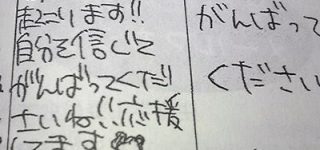 います!!
自分を信じて
がんばってくだ
さいね!!応援
してます
がんばって
ください